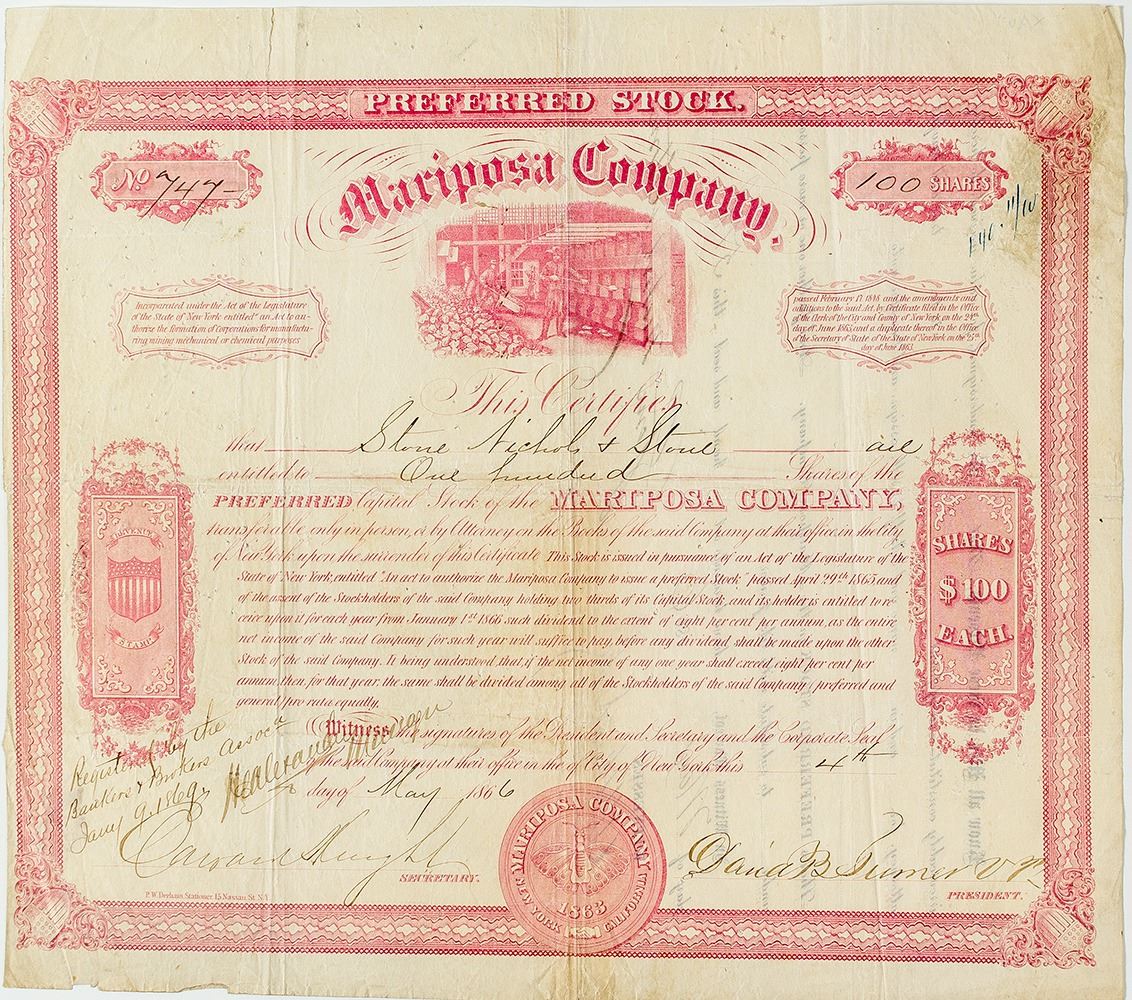 PREFERRED STOCK.
Mariposa Company.
No 747
100 SHARES
Incorporated under the Act of the Legislature
of the State of New York entitled "an Act to au-
thorize the formation of Corporations for manufactu-
ring mining mechanical or chemical purposes
passed February 17, 1848 and the amendments and
additions to the said Act, by Certificate filed in the Office
of the Clerk of the City and County of New York on the 24th
day of June 1863, and a duplicate thereof in the Office
of the Secretary of State of the State of New York on the 25th
day of June 1863.
This Certifies
that Stone Nichols & Stone are
entitled to One hundred Shares of the
PREFERRED Capital Stock of the MARIPOSA COMPANY,
transferable only in person, or by Attorney on the Books of the said Company at their office, in the City
of New York upon the surrender of this Certificate This Stock is issued in pursuance of an Act of the Legislature of the
State of New York, entitled "An act to authorize the Mariposa Company to issue a preferred Stock" passed April 29th 1865 and
of the assent of the Stockholders of the said Company holding two thirds of its Capital Stock, and its holder is entitled to re-
ceive upon it for each year from January 1st 1866 such dividend to the extent of eight per cent per annum, as the entire
net income of the said Company for such year will suffice to pay, before any dividend shall be made upon the other
Stock of the said Company. It being understood, that, if the net income of any one year shall exceed eight per cent per
annum, then, for that year, the same shall be divided among all of the Stockholders of the said Company preferred and
general, pro rata, equally.
REVENUE
STAMP
SHARES
$100
EACH.
Witness the signatures of the President and Secretary and the Corporate Seal
of the said Company at their office in the of City of New York this 4th
day of May 1866
Registered by the
Bankers & Brokers Assoc'n
Jany 9. 1869
SECRETARY.
David B Turner V.P.
PRESIDENT.
MARIPOSA COMPANY
NEW YORK CALIFORNIA
1863
15 Nassau St. N.Y.